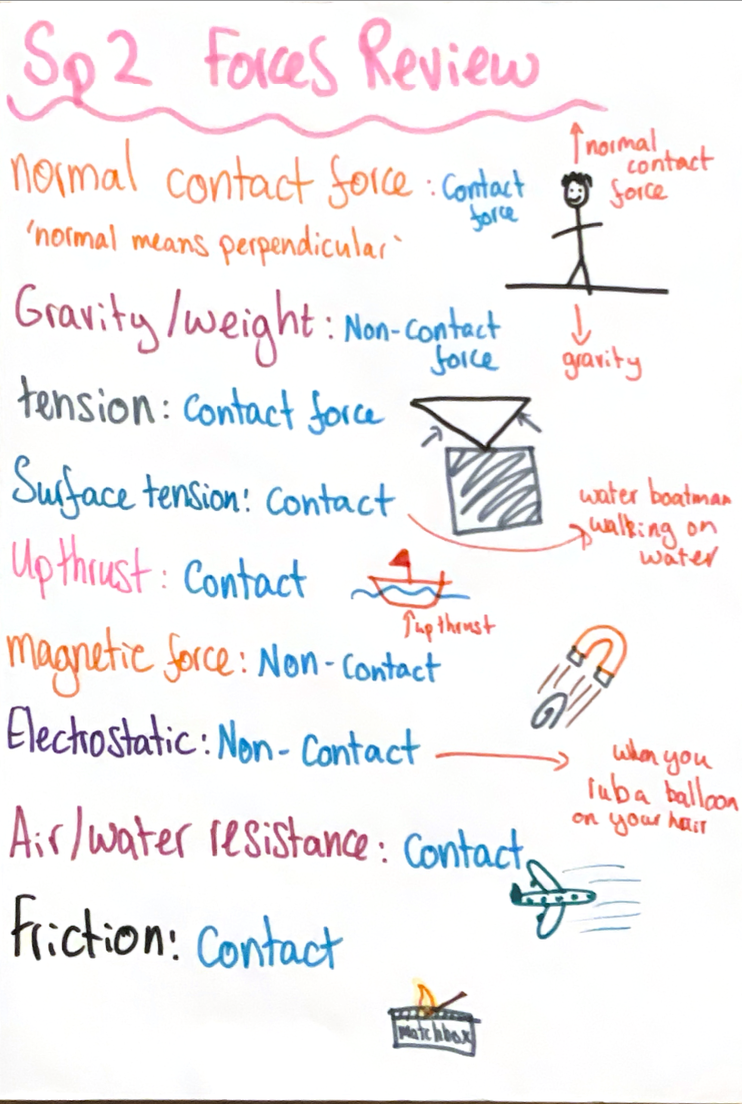 Sp2 Forces Review
normal contact force : Contact
force
'normal means perpendicular`
normal
contact
force
Gravity/weight : Non-Contact
force
gravity
tension: Contact force
Surface tension: Contact
water boatman
walking on
water
Upthrust : Contact
upthrust
magnetic force: Non-Contact
Electrostatic: Non-Contact
when you
rub a balloon
on your hair
Air/water resistance: Contact
Friction: Contact
matchbox